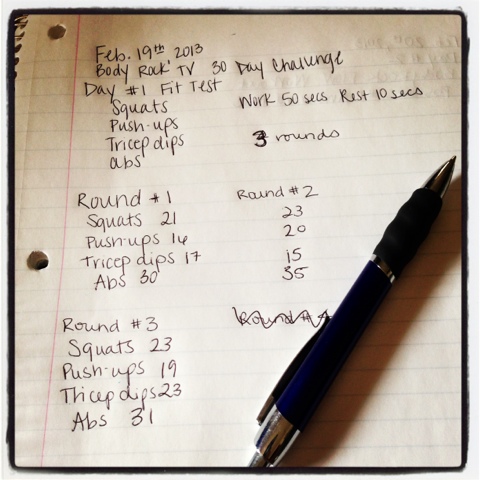 Feb. 19th 2013
Body Rock TV 30 Day Challenge
Day #1 Fit Test
Squats
Push-ups
Tricep dips
abs
Work 50 secs Rest 10 secs
3 rounds
Round #1
Squats 21
Push-ups 16
Tricep dips 17
Abs 30
Round #2
23
20
15
35
Round #3
Squats 23
Push-ups 19
Tricep dips 23
Abs 31